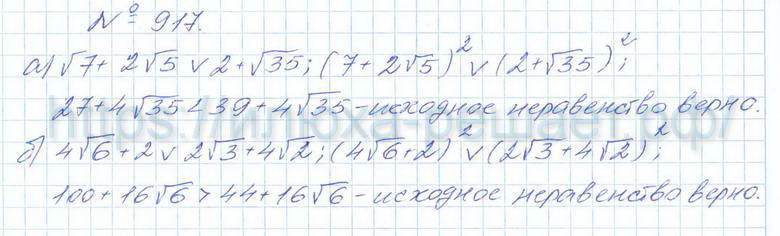 № 917.
а) √7 + 2√5 ∨ 2 + √35; (7 + 2√5)² ∨ (2 + √35)²;
27 + 4√35 < 39 + 4√35 - исходное неравенство верно.
б) 4√6 + 2 ∨ 2√3 + 4√2; (4√6 + 2)² ∨ (2√3 + 4√2)²;
100 + 16√6 > 44 + 16√6 - исходное неравенство верно.